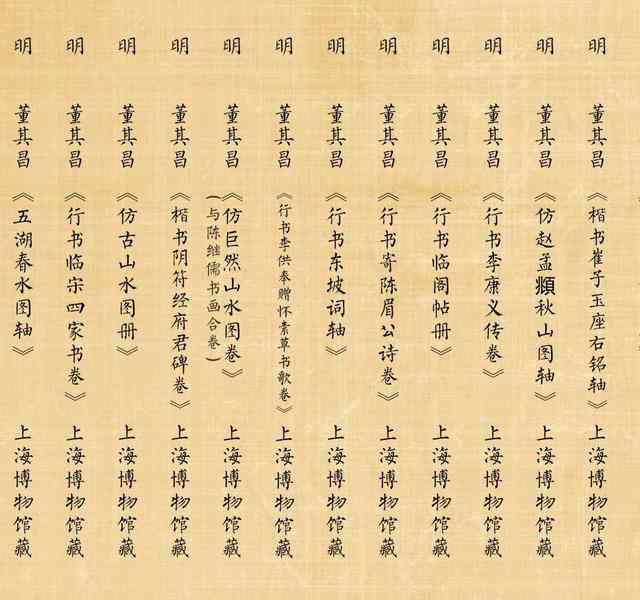 明 董其昌 《楷书崔子玉座右铭轴》 上海博物馆藏
明 董其昌 《仿赵孟頫秋山图轴》 上海博物馆藏
明 董其昌 《行书李康义传卷》 上海博物馆藏
明 董其昌 《行书临阁帖册》 上海博物馆藏
明 董其昌 《行书寄陈眉公诗卷》 上海博物馆藏
明 董其昌 《行书东坡词轴》 上海博物馆藏
明 董其昌 《行书李供奉赠怀素草书歌卷》 上海博物馆藏
明 董其昌 《仿巨然山水图卷》 上海博物馆藏
(与陈继儒书画合卷)
明 董其昌 《楷书阴符经府君碑卷》 上海博物馆藏
明 董其昌 《仿古山水图册》 上海博物馆藏
明 董其昌 《行书临宗四家书卷》 上海博物馆藏
明 董其昌 《五湖春水图轴》 上海博物馆藏